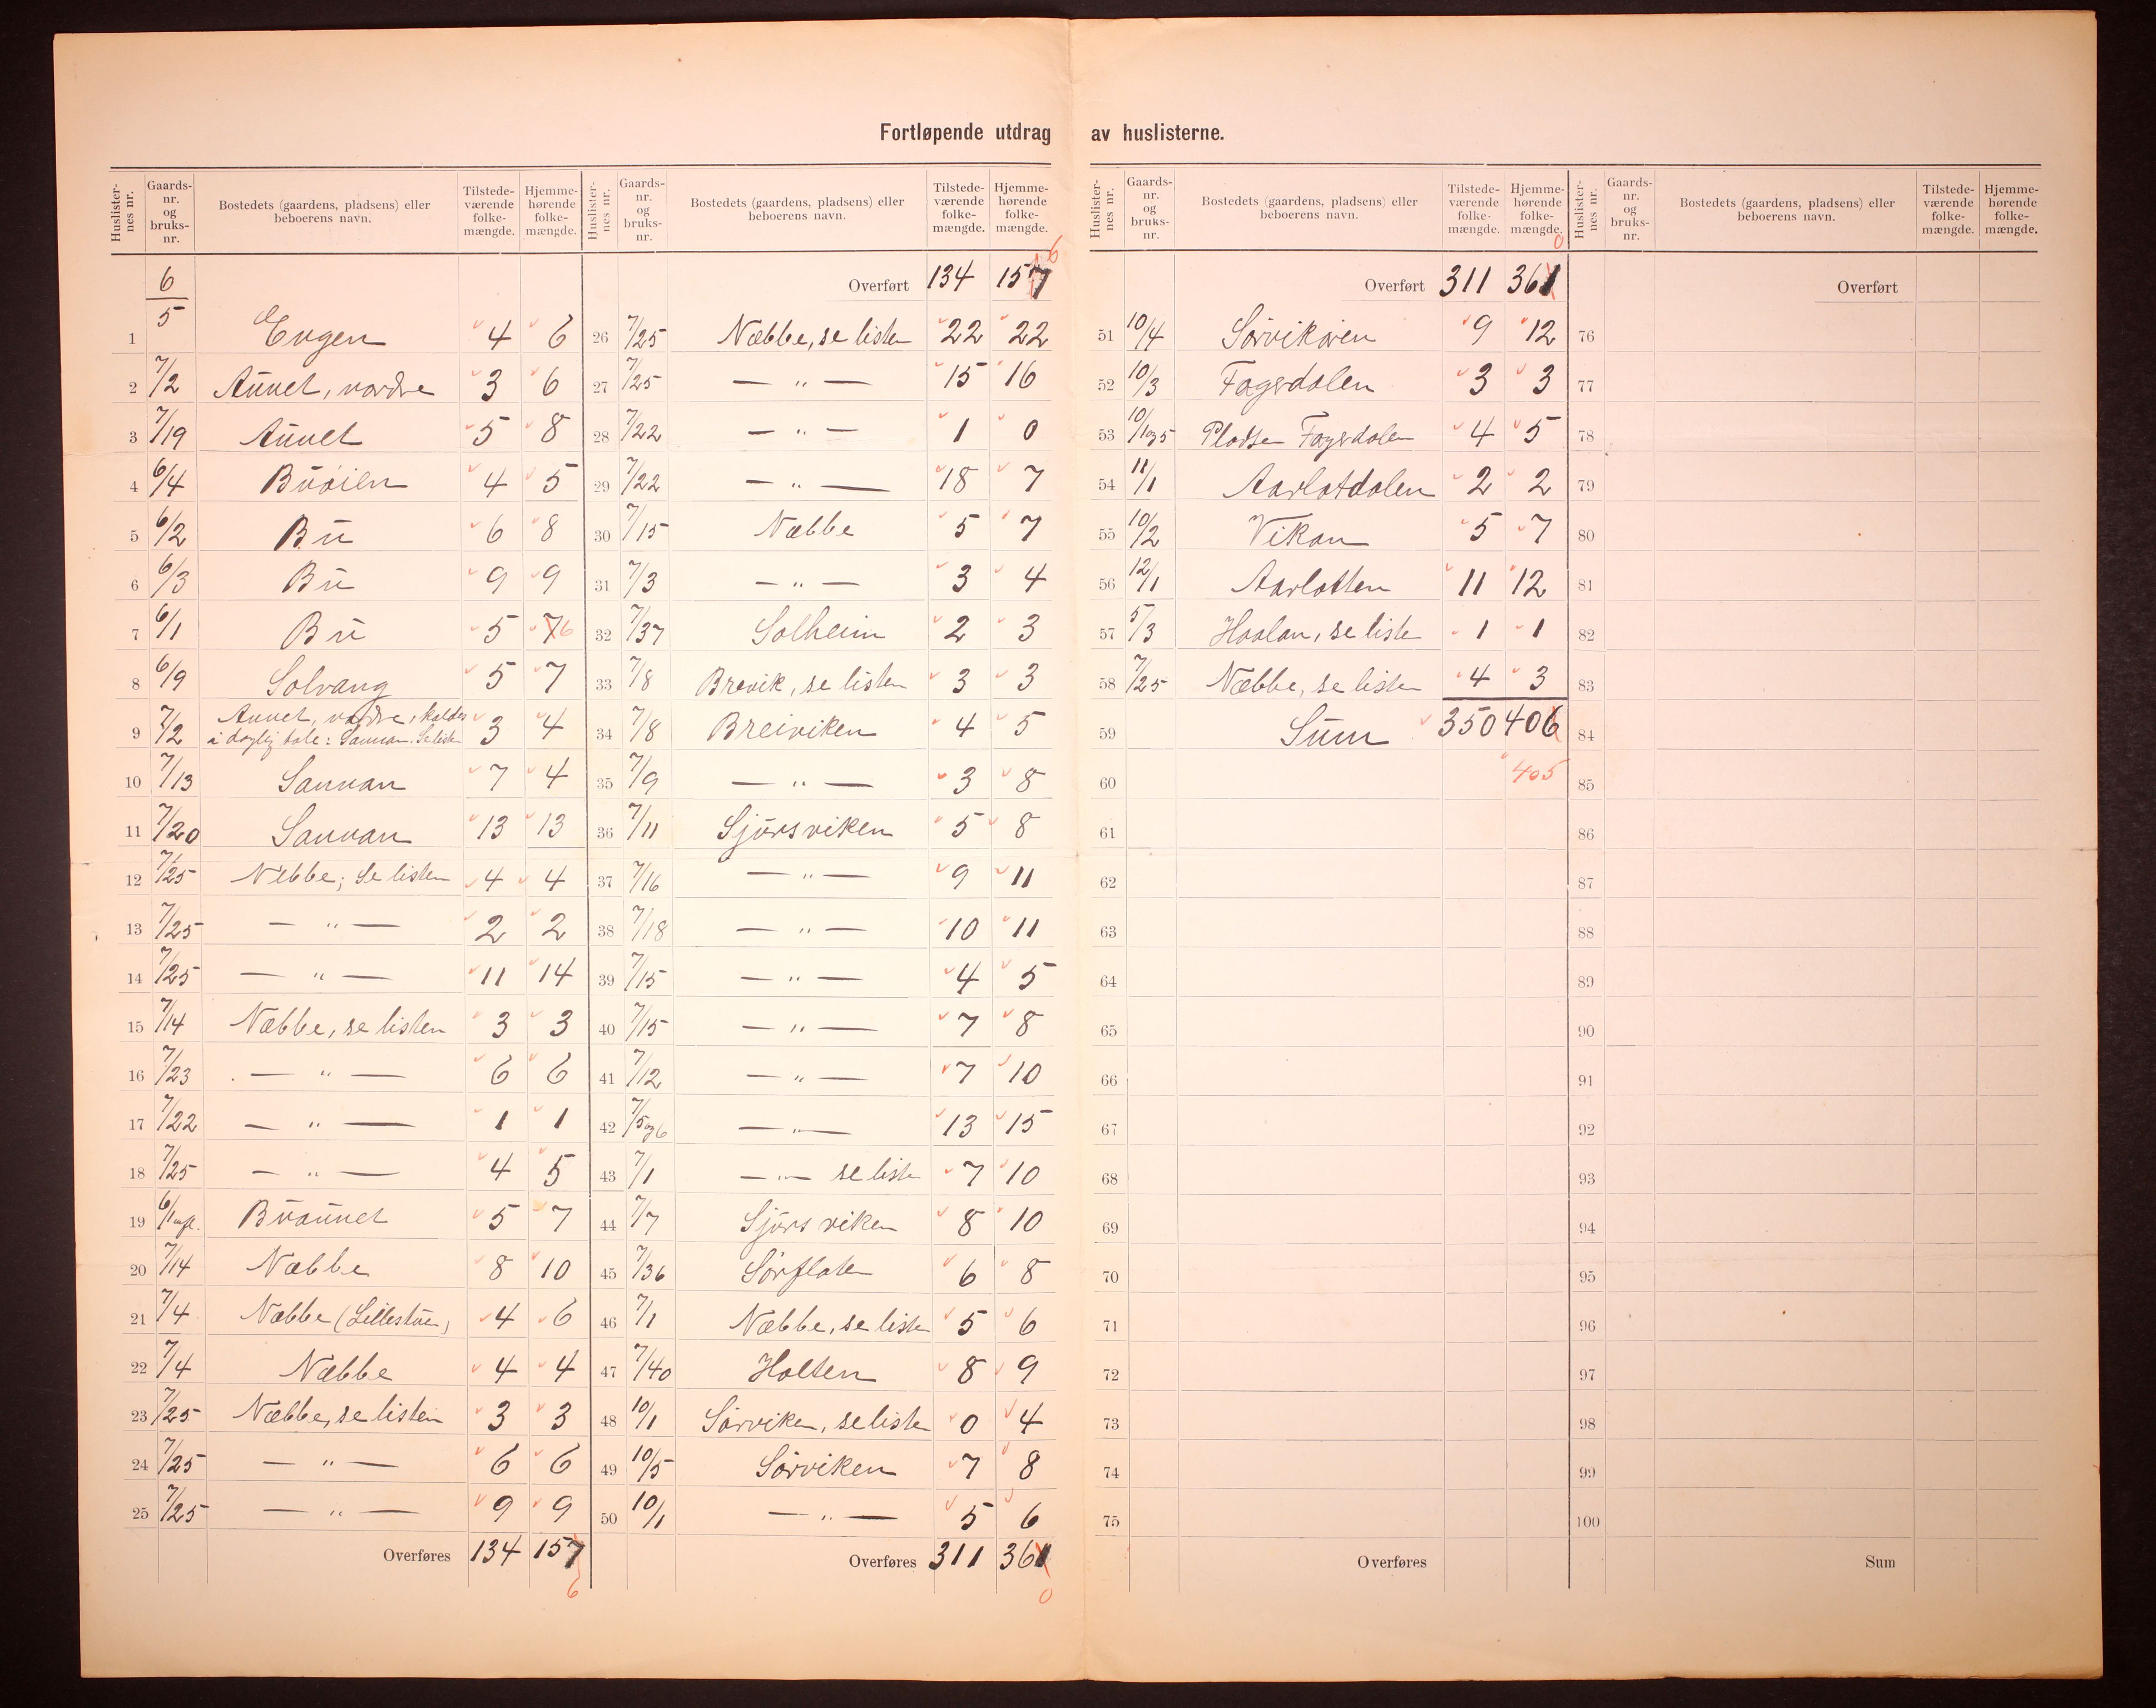 Fortløpende utdrag av huslisterne.
Huslisternes nr. Gaards-nr. og bruks-nr. Bostedets (gaardens, pladsens) eller beboerens navn. Tilstedeværende folkemængde. Hjemmehørende folkemængde.
1 6/5 Engen 4 6
2 7/2 Aunet, nordre 3 6
3 7/19 Aunet 5 8
4 6/4 Buöien 4 5
5 6/2 Bu 6 8
6 6/3 Bu 9 9
7 6/1 Bu 5 7 6
8 6/9 Solvang 5 7
9 7/2 Aunet, nordre, kaldes
i daglig tale: Sannan. Se listen 3 4
10 7/13 Sannan 7 4
11 7/20 Sannan 13 13
12 7/25 Nebbe; se listen 4 4
13 7/25 — " — 2 2
14 7/25 — " — 11 14
15 7/14 Næbbe, se listen 3 3
16 7/23 — " — 6 6
17 7/22 — " — 1 1
18 7/25 — " — 4 5
19 6/1 Buaunet 5 7
20 7/14 Næbbe 8 10
21 7/4 Næbbe (Lillestuen) 4 6
22 7/4 Næbbe 4 4
23 7/25 Næbbe, se listen 3 3
24 7/25 — " — 6 6
25 7/25 — " — 9 9
Overføres 134 157
6
Huslisternes nr. Gaards-nr. og bruks-nr. Bostedets (gaardens, pladsens) eller beboerens navn. Tilstedeværende folkemængde. Hjemmehørende folkemængde.
6
Overført 134 157
26 7/25 Næbbe, se listen 22 22
27 7/25 — " — 15 16
28 7/22 — " — 1 0
29 7/22 — " — 18 7
30 7/15 Næbbe 5 7
31 7/3 — " — 3 4
32 7/37 Solheim 2 3
33 7/8 Brevik, se listen 3 3
34 7/8 Breiviken 4 5
35 7/9 — " — 3 8
36 7/11 Sjursviken 5 8
37 7/16 — " — 9 11
38 7/18 — " — 10 11
39 7/15 — " — 4 5
40 7/15 — " — 7 8
41 7/12 — " — 7 10
42 7/5 og 6 — " — 13 15
43 7/1 — " — se liste 7 10
44 7/7 Sjursviken 8 10
45 7/36 Sörflaten 6 8
46 7/1 Næbbe, se listen 5 6
47 7/40 Holten 8 9
48 10/1 Sörviken, se liste 0 4
49 10/5 Sörviken 7 8
50 10/1 — " — 5 6
Overføres 311 361
0
Huslisternes nr. Gaards-nr. og bruks-nr. Bostedets (gaardens, pladsens) eller beboerens navn. Tilstedeværende folkemængde. Hjemmehørende folkemængde.
0
Overført 311 361
51 10/4 Sörviköien 9 12
52 10/3 Fagerdalen 3 3
53 10/1 og 5 Pladsen Fagerdalen 4 5
54 11/1 Aarlotdalen 2 2
55 10/2 Vikan 5 7
56 12/1 Aarlotten 11 12
57 5/3 Haalan, se liste 1 1
58 7/25 Næbbe, se listen 4 3
59 Sum 350 406
60 405
61
62
63
64
65
66
67
68
69
70
71
72
73
74
75
Overføres
Huslisternes nr. Gaards-nr. og bruks-nr. Bostedets (gaardens, pladsens) eller beboerens navn. Tilstedeværende folkemængde. Hjemmehørende folkemængde.
Overført
76
77
78
79
80
81
82
83
84
85
86
87
88
89
90
91
92
93
94
95
96
97
98
99
100
Sum